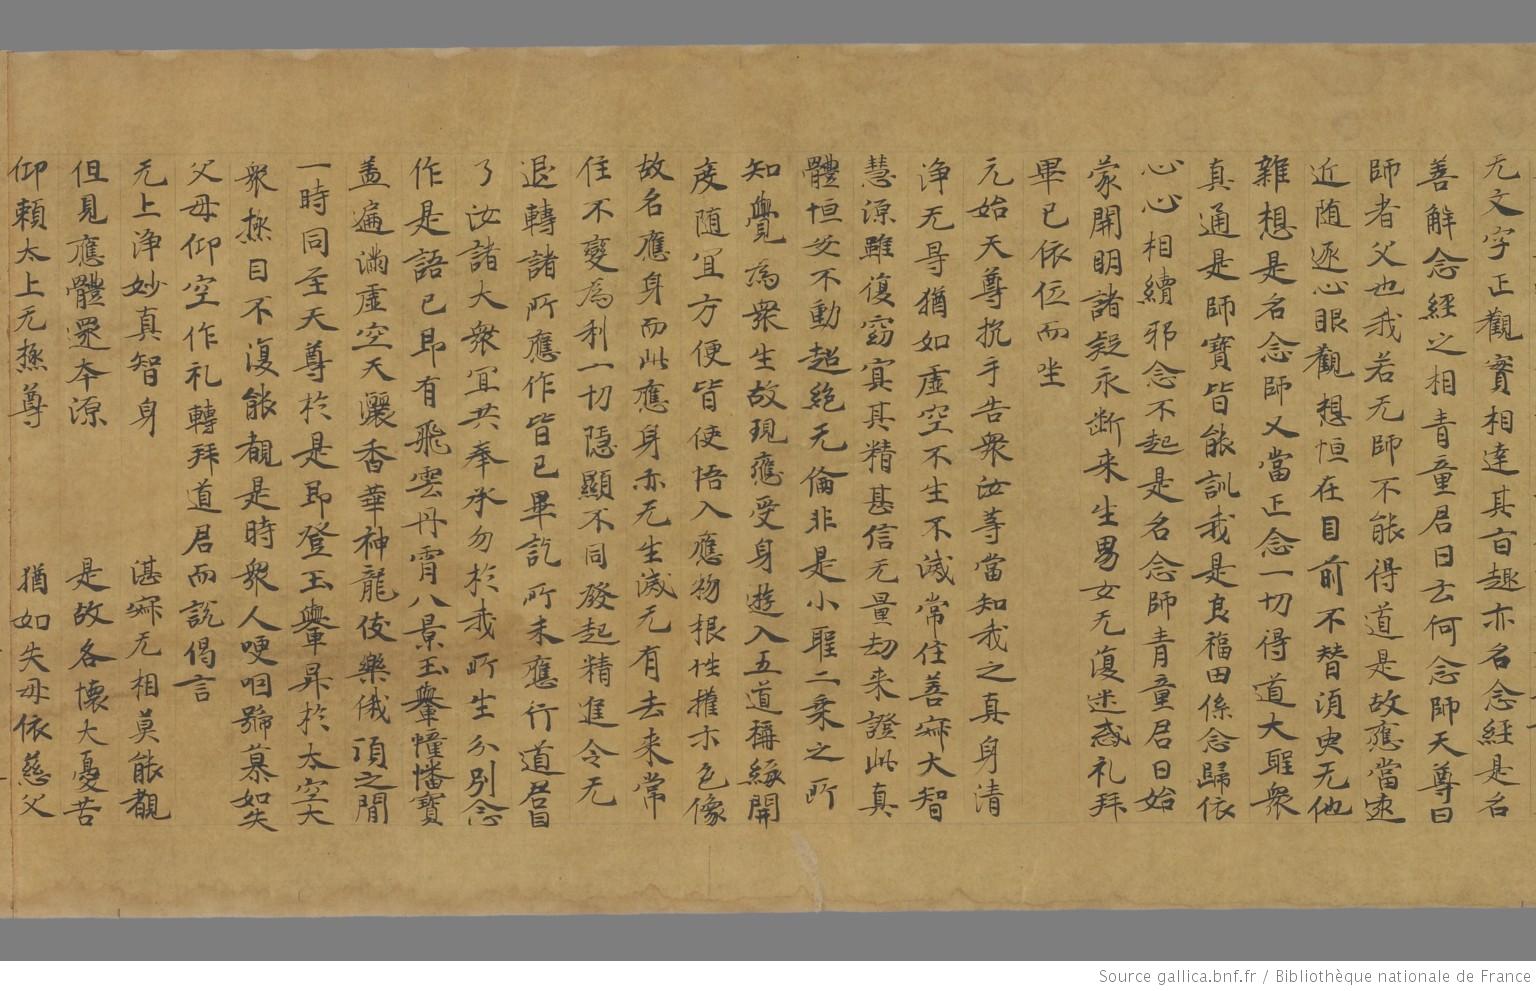 无文字正觀實相達其旨趣亦名念經是名
善解念經之相青童君曰云何念師天尊曰
師者父也我若无師不能得道是故應當遠
近随逐心眼觀想恒在目前不替須臾无他
雜想是名念師又當正念一切得道大聖衆
真通是師寶皆能訓我是良福田係念歸依
心心相續邪念不起是名念師青童君曰始
蒙開明諸疑永断来生男女无復迷惑礼拜
畢已依位而坐
元始天尊抗手告衆汝等當知我之真身清
浄无㝵猶如虚空不生不滅常住善寂大智
慧源雖復窈冥其精甚信无量劫来證此真
體恒安不動超絶无倫非是小聖二乘之所
知覺為衆生故現應受身遊入五道稱緣開
度随冝方便皆使悟入應物根性權示色像
故名應身而此應身亦无生滅无有去来常
住不變為利一切隠顯不同發起精進令无
退轉諸所應作皆已畢訖所未應行道君自
了汝諸大衆冝共奉承勿於我所生分別念
作是語已即有飛雲丹霄八景玉輿幢幡寶
盖遍滿虚空天灑香華神龍伎樂俄頃之閒
一時同至天尊於是即登玉輿昇於太空大
衆㧡目不復能覩是時衆人哽咽號慕如失
父母仰空作礼轉拜道君而説偈言
无上浄妙真智身　湛寂无相莫能覩
但見應體還本源　是故各懐大憂苦
仰頼太上无㧡尊　猶如失母依慈父
Source gallica.bnf.fr / Bibliothèque nationale de France